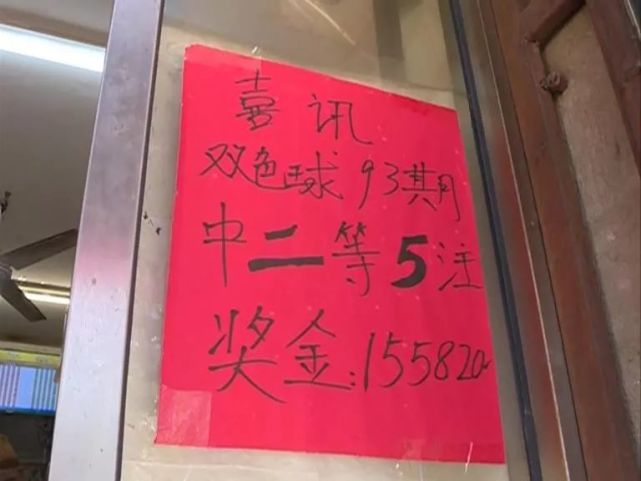 喜讯
双色球93期
中二等5注
奖金:155820